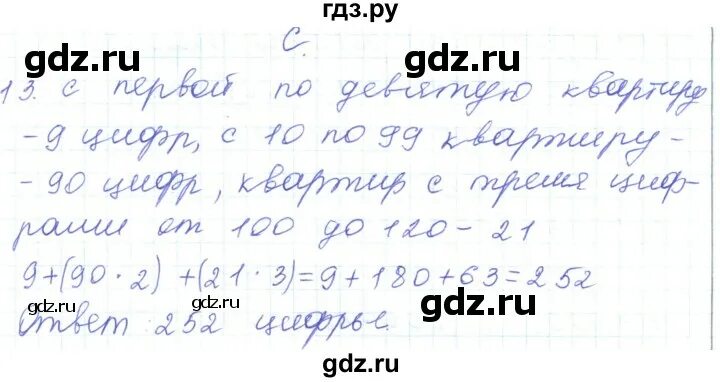 гдз.ру
gdz.ru gdz.ru
С.
13. с первой по девятую квартиру
- 9 цифр, с 10 по 99 квартиру -
gdz.ru gdz.ru
- 90 цифр, квартир с тремя циф-
рами от 100 до 120 - 21
gdz.ru gdz.ru
9+(90·2) +(21·3)=9+180+63=252
Ответ 252 цифры.
gdz.ru gdz.ru
gdz.ru